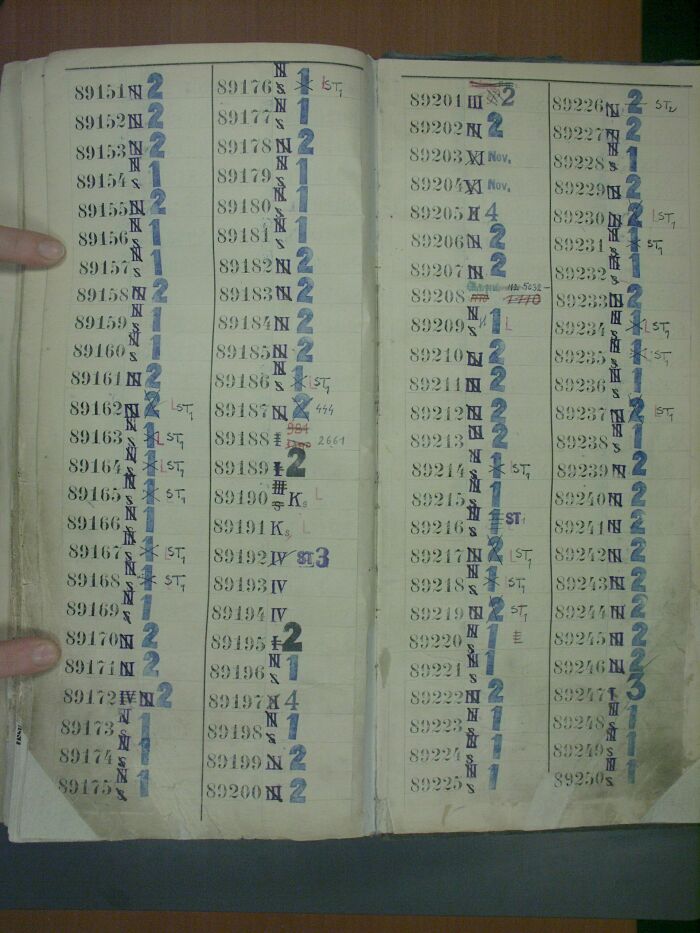 89151 N 2
89152 N 2
89153 N 2
89154 N S 1
89155 N 2
89156 N S 1
89157 N S 1
89158 N 2
89159 N S 1
89160 N S 1
89161 N 2
89162 N 2 L ST1
89163 N S 1 L ST1
89164 N S 1 L ST1
89165 N S 1 ST1
89166 N S 1
89167 N S 1 L ST1
89168 N S 1 ST1
89169 N S 1
89170 N 2
89171 N 2
89172 IV N 2
89173 N S 1
89174 N S 1
89175 N S 1
89176 N S 1 L ST1
89177 N S 1
89178 N 2
89179 N S 1
89180 N S 1
89181 N S 1
89182 N 2
89183 N 2
89184 N 2
89185 N 2
89186 N S 1 L ST1
89187 N 2 444
89188 I 984 2661
89189 I 2
89190 III S Ks L
89191 Ks L
89192 IV ST 3
89193 IV
89194 IV
89195 I 2
89196 N S 1
89197 II 4
89198 N S 1
89199 N 2
89200 N 2
89201 III 2
89202 N 2
89203 XI Nov.
89204 XI Nov.
89205 II 4
89206 N 2
89207 N 2
89208 5032-
89209 N S 1 L
89210 N 2
89211 N 2
89212 N 2
89213 N 2
89214 N S 1 ST1
89215 N S 1
89216 N S 1 ST1
89217 N 2 L ST1
89218 N S 1 ST1
89219 N 2 ST1
89220 N S 1 E
89221 N S 1
89222 N 2
89223 N S 1
89224 N S 1
89225 N S 1
89226 N 2 ST2
89227 N 2
89228 N S 1
89229 N 2
89230 N 2 L ST1
89231 N S 1 ST1
89232 N S 1
89233 N 2
89234 N S 1 L ST1
89235 N S 1 ST1
89236 N S 1
89237 N 2 L ST1
89238 N S 1
89239 N 2
89240 N 2
89241 N 2
89242 N 2
89243 N 2
89244 N 2
89245 N 2
89246 N 2
89247 I 3
89248 N S 1
89249 N S 1
89250 N S 1